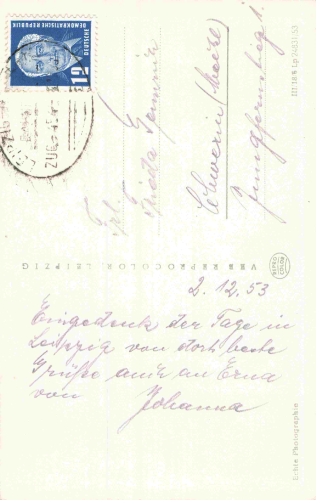 DEUTSCHE
DEMOKRATISCHE REPUBLIK
12
LEIPZIG
ZUG
Frl.
Frieda
Schwerin (Meckl.)
Jungfernstieg 1.
III/18/8 Lp 2483/53
VEB REPROCOLOR LEIPZIG
2.12.53
Eingedenk der Tage in
Leipzig von dort beste
Grüße auch an Erna
von Johanna
Echte Photographie